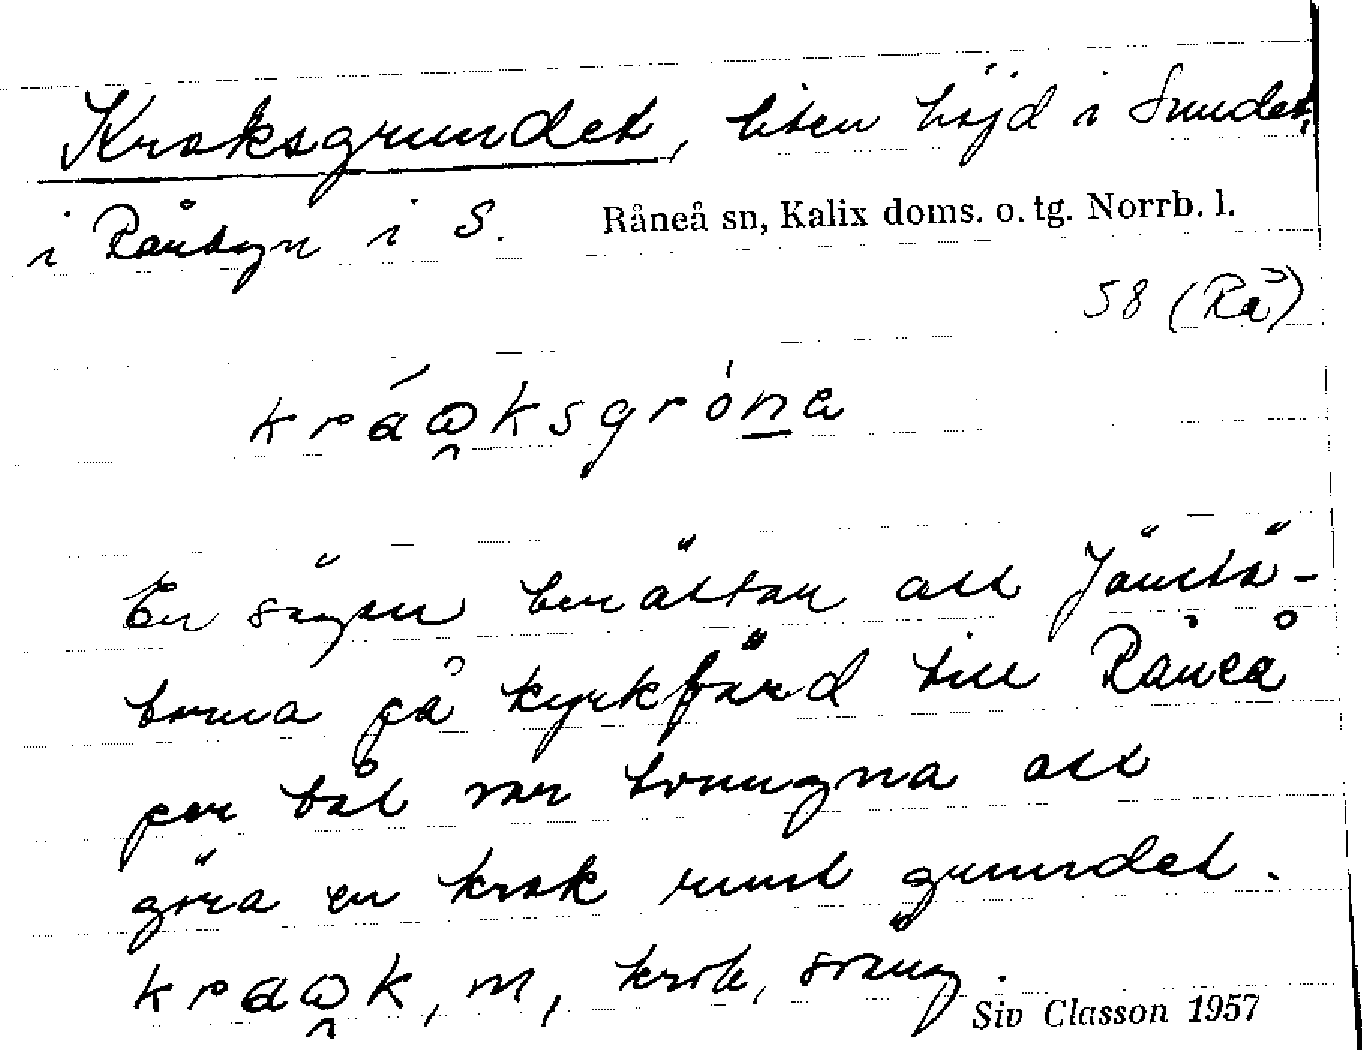 Kroksgrundet, liten höjd i Sundet,
i Rånbyn i S. Råneå sn, Kalix doms. o. tg. Norrb. l.
58 (Rå)
kráω̭ksgrón̲a
En sägen berättar att Jämtö-
borna på kyrkfärd till Råneå
per båt var tvungna att
göra en krok runt grundet.
kraω̭k, m, krok, sväng.
Siv Classon 1957